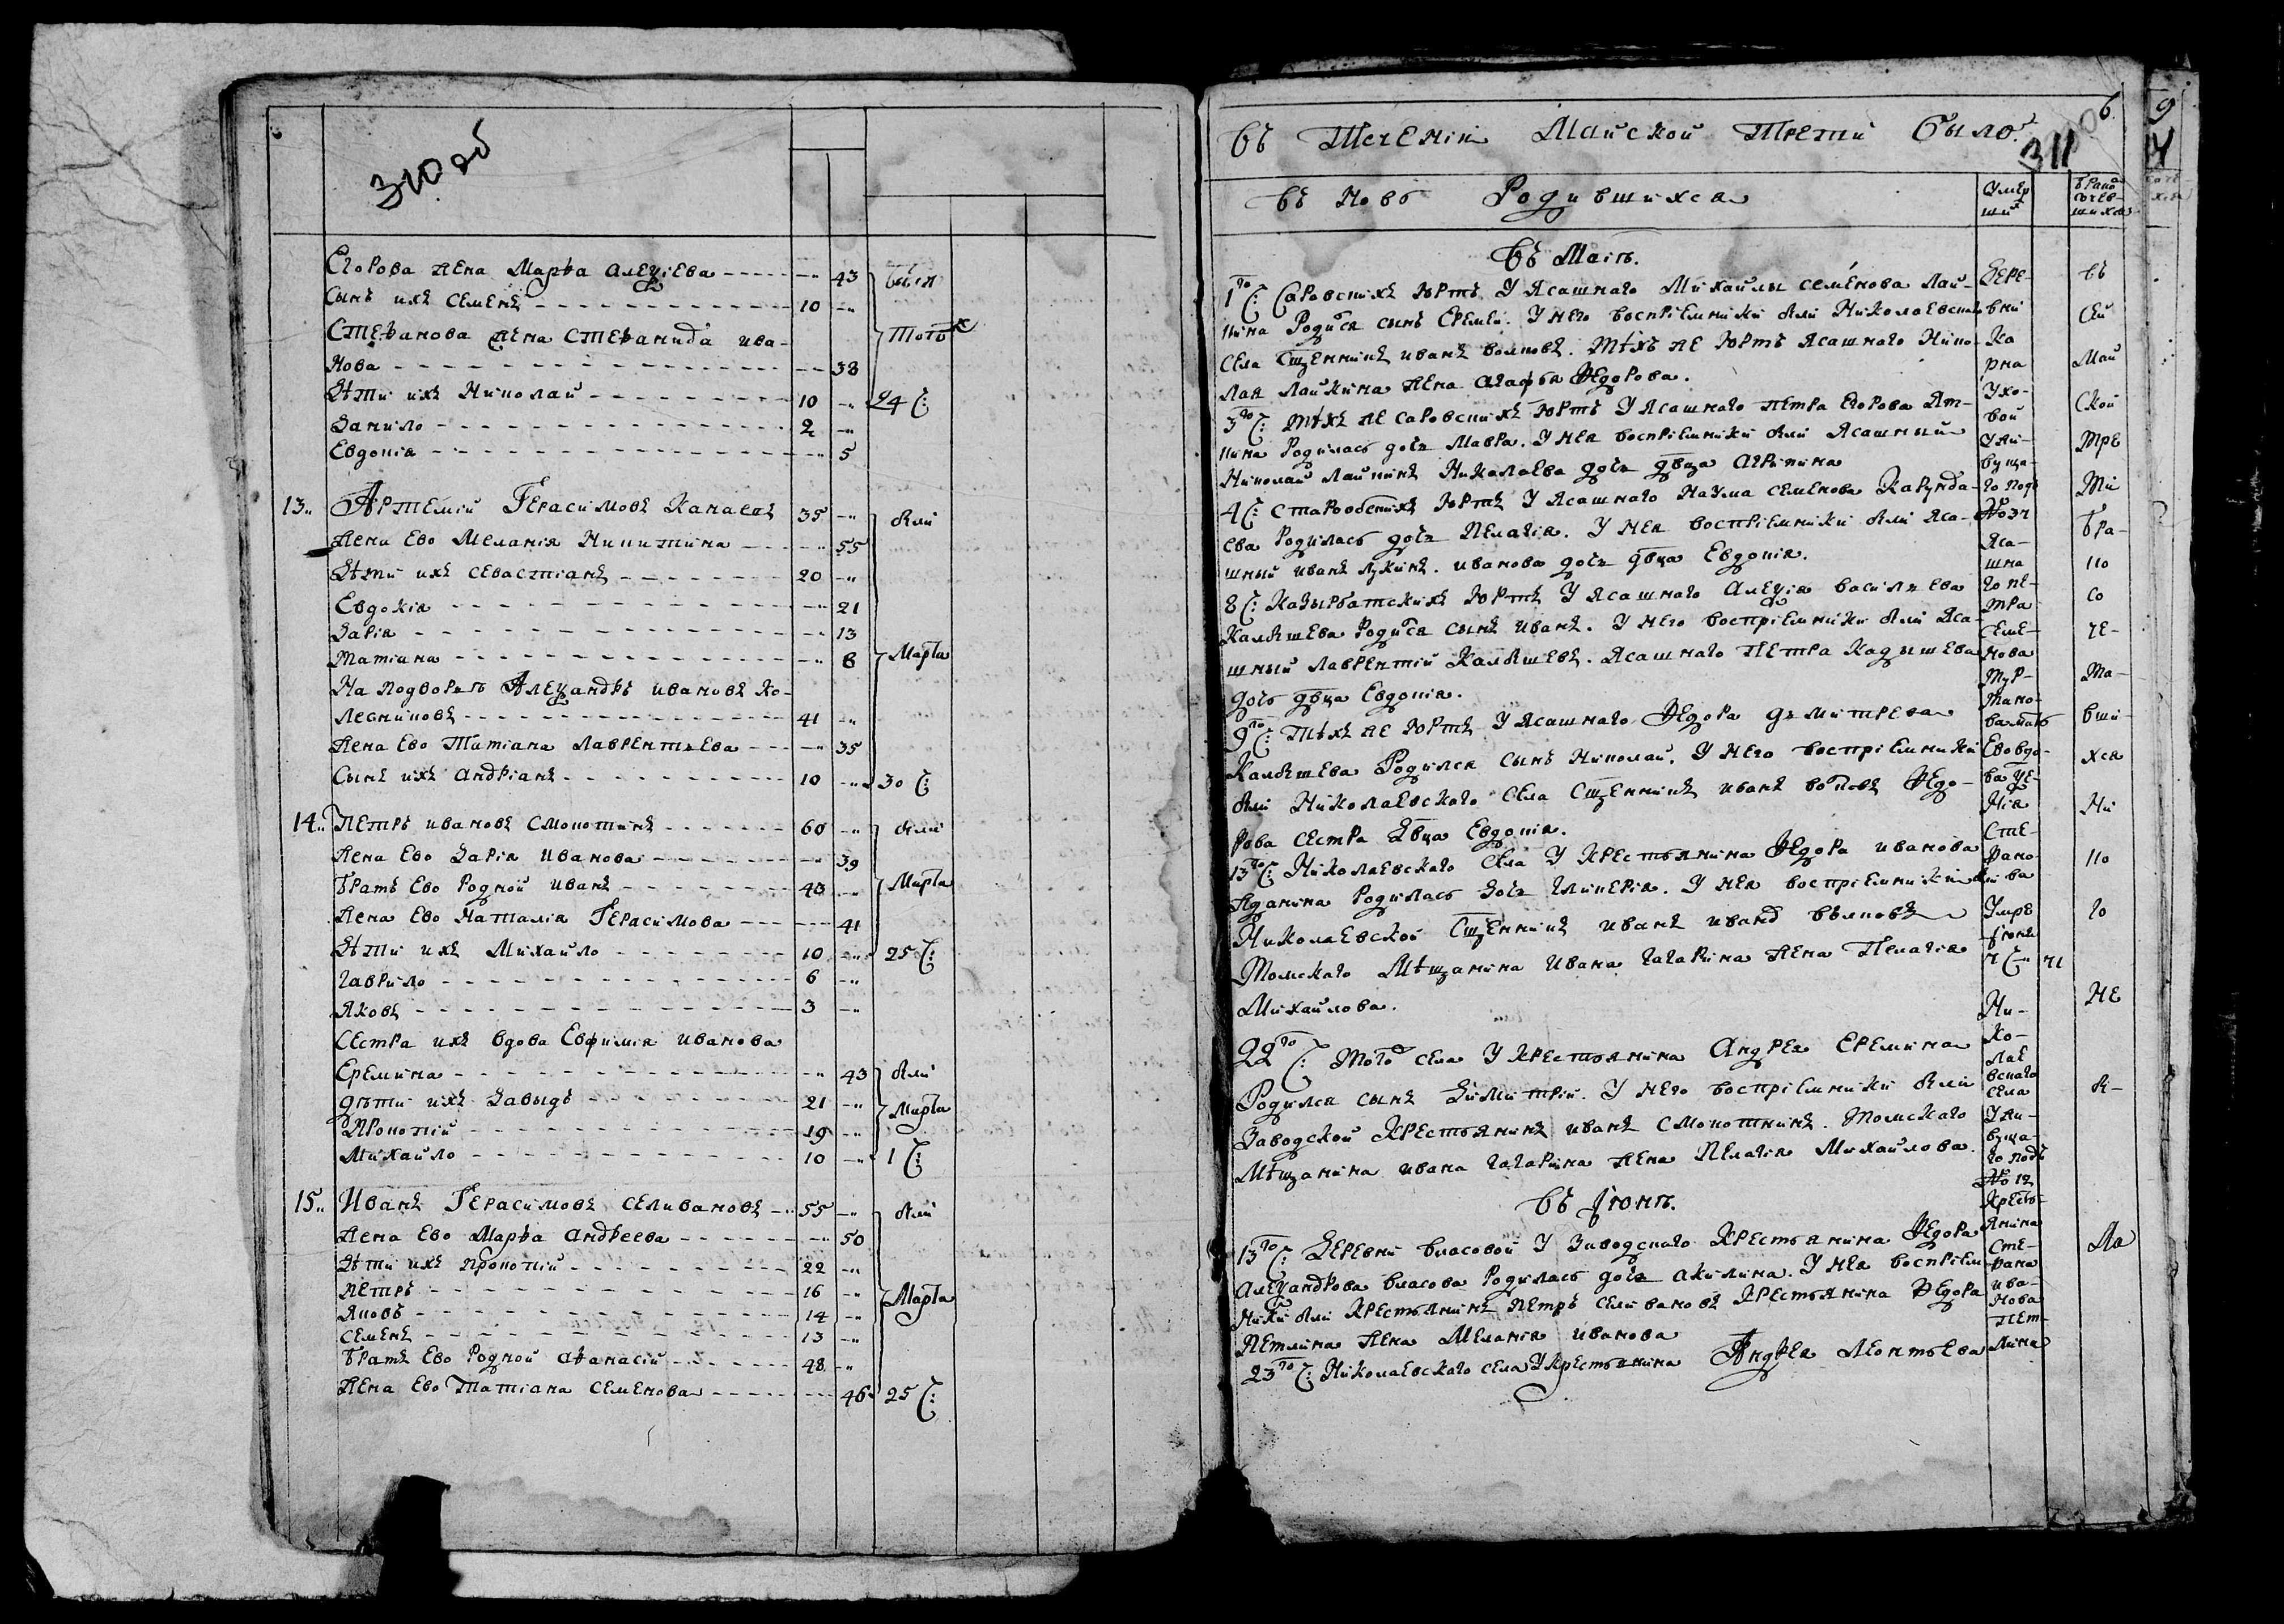 310 об
Егорова жена Марѳа Алеѯіева -- 43
Сынъ ихъ Семенъ 10 --
Стеѳанова жена Стеѳанида ива-
нова -- 38
Дѣти ихъ Николай 10 -- 24
Данило 2 --
Евдокія -- 5
13. Артемій Герасимовъ Канаевъ 35 -- были
Жена Ево Меланія Никитина -- 55
Дѣти ихъ Севастіанъ 20 --
Евдокія -- 21
Дарія -- 13
Татіана -- 8 Марта
На подворьѣ Алеѯандръ ивановъ Ко-
лесниковъ 41 --
Жена Ево Татіана Лаврентьева -- 35
Сынъ ихъ андріанъ 10 -- 30
14. Петръ ивановъ Смокотинъ 60 -- были
Жена Ево Дарія Иванова -- 39
Братъ Ево Родной иванъ 43 -- Марта
Жена Ево Наталія Герасимова -- 41
Дѣти ихъ Михайло 10 -- 25
Гаврило 6 --
Яковъ 3 --
Сестра ихъ вдова Евфимія иванова
Еремина -- 43 были
дѣти ихъ Давыдъ 21 -- Марта
Прокопій 19 --
Михайло 10 -- 1
15. Иванъ Герасимовъ Селивановъ 55 -- были
Жена Ево Марѳа андреева -- 50
Дѣти ихъ Прокопій 22 --
Петръ 16 -- Марта
Яковъ 14 --
Семенъ 13 --
Братъ Ево Родной аѳанасій 48 --
Жена Ево Татіана Семенова -- 46 25
въ Теченіи Майской Трети было
311
въ ново Родившихся
Въ Маіѣ.
1го Саровскихъ Юртъ У Ясашнаго Михайлы семенова Лай-
кина Родился сынъ Еремей. У него воспріемники были Николаевскаго
села Сщенникъ иванъ волковъ. Тѣхъ же Юртъ Ясашнаго Нико-
лая Лайкина жена агафья Ѳедорова.
3го Тѣхъ же саровскихъ Юртъ У Ясашнаго петра Егорова
кина Родилась дочь Мавра. У нея воспріемники были Ясашный
Николай Лайкинъ Николаева дочь двца Агрипина
4 Юртъ У Ясашнаго Наума семенова
ева Родилась дочь Пелагія. У нея воспріемники были Яса-
шный иванъ Лукинъ. иванова дочь двца Евдокія.
8 Казырбатскихъ Юртъ У Ясашнаго Алеѯія васильева
Родился сынъ иванъ. У него воспріемники были Яса-
шный Лаврентій. Ясашнаго Петра Кадышева
дочь двца Евдокія.
9го Тѣхъ же Юртъ У Ясашнаго Ѳедора дьмитрева
Родился сынъ Николай. У него воспріемники
были Николаевскаго села Сщенникъ иванъ волковъ Ѳедо-
рова сестра Двца Евдокія.
13го Николаевскаго села У Крестьянина Ѳедора иванова
Жданина Родилась Дочь Гликерія. У нея воспріемники были
Николаевской Сщенникъ иванъ волковъ
Томскаго Мѣщанина Ивана Гагарина жена Пелагія
Михайлова.
22го Того села У Крестьянина Андрея Еремина
Родился сынъ Димитрій. У него воспріемники были
Заводской Крестьянинъ иванъ Смокотнинъ. Томскаго
Мѣщанина ивана Гагарина жена Пелагія Михайлова.
Въ Іюнѣ.
13го Деревни власовой У Заводскаго Крестьянина Ѳедора
Алеѯандрова власова Родилась дочь акилина. У нея воспріем-
ники были Крестьянинъ Петръ селивановъ Крестьянина Ѳедора
Петлина жена Меланія иванова
23го Николаевскаго села У Крестьянина Андрея Леонтьева
Умер
ших
Дере-
вни
Ка
рна
Ухо-
вой
Ужи-
вуща-
го подъ
№
Яса-
шна
го пе-
тра
Семе-
нова
Мур-
Ево вдо-
ва
Сте-
ѳано-
ва
Умре
Іюня
7 71
Ни-
ко-
лае
вскаго
села
Ужи-
вуща-
го подъ
№ 12
Кресть-
янина
Сте-
ѳана
ива-
нова
Пет-
лина
Брако
сочев-
шихся
въ
сей
Май
ской
Тре
ти
Бра-
ко
со
че-
та-
вши-
хся
Ни
ко
го
не
бы-
ло